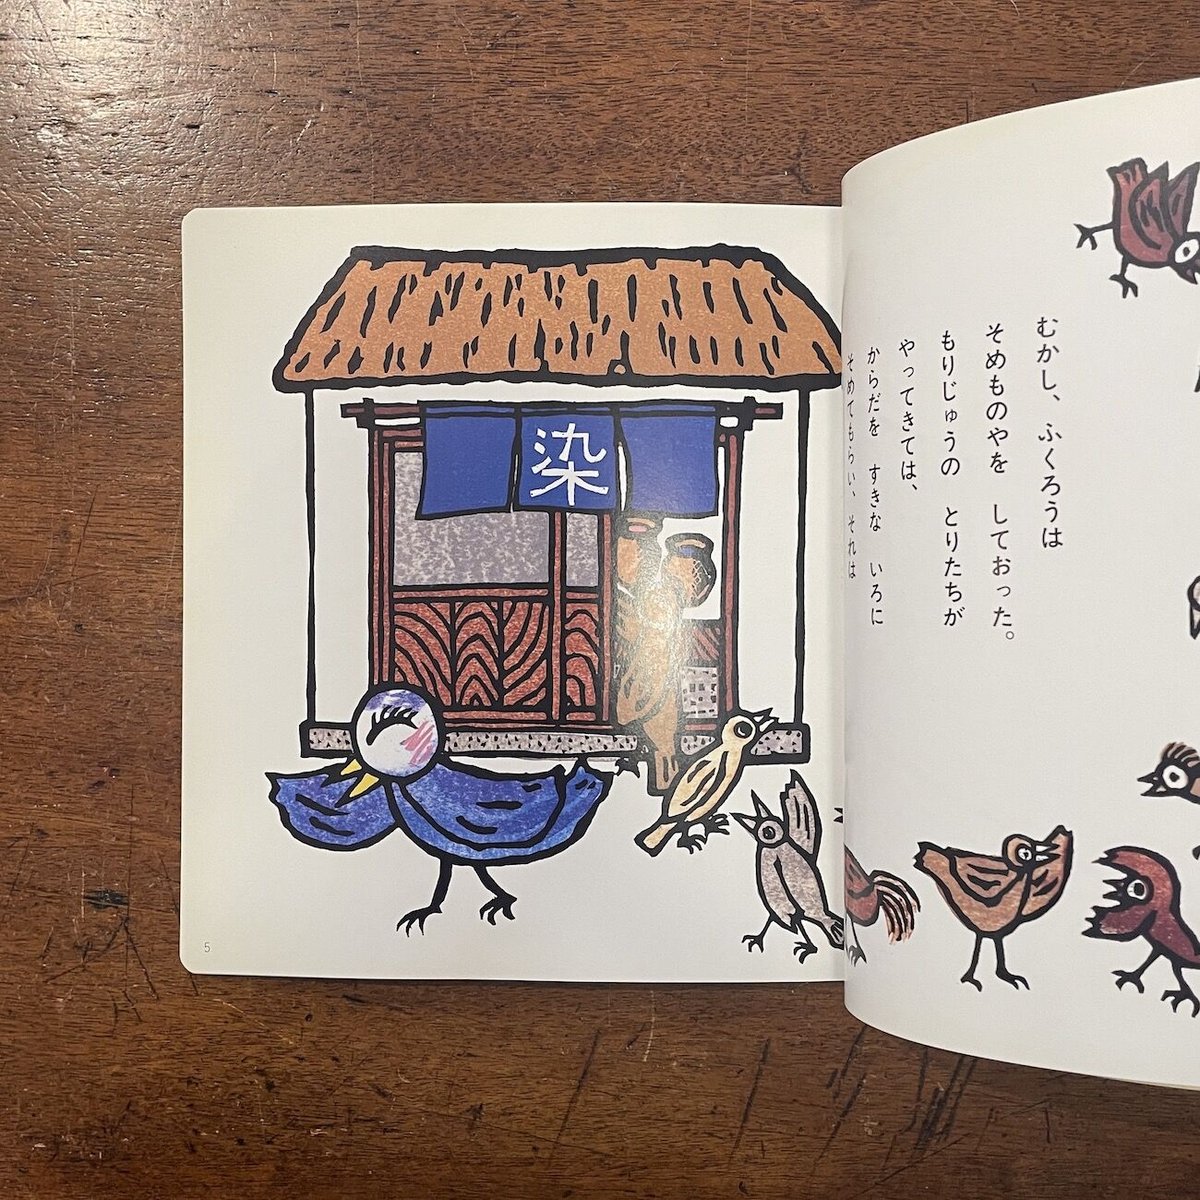 染
むかし、ふくろうは
そめものやを しておった。
もりじゅうの とりたちが
やってきては、
からだを すきな いろに
そめてもらい、それは
5